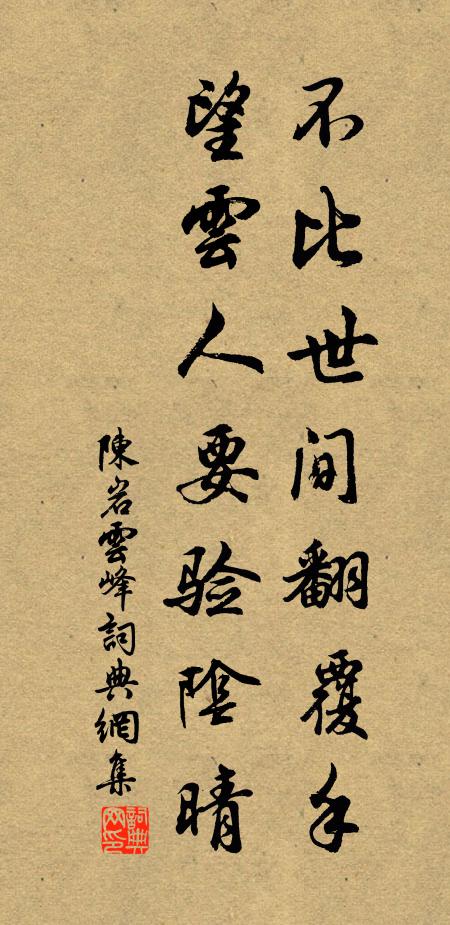 不比世間翻覆手
望雲人要验陰晴
陳岩雲峰詞典網集
詞典网印